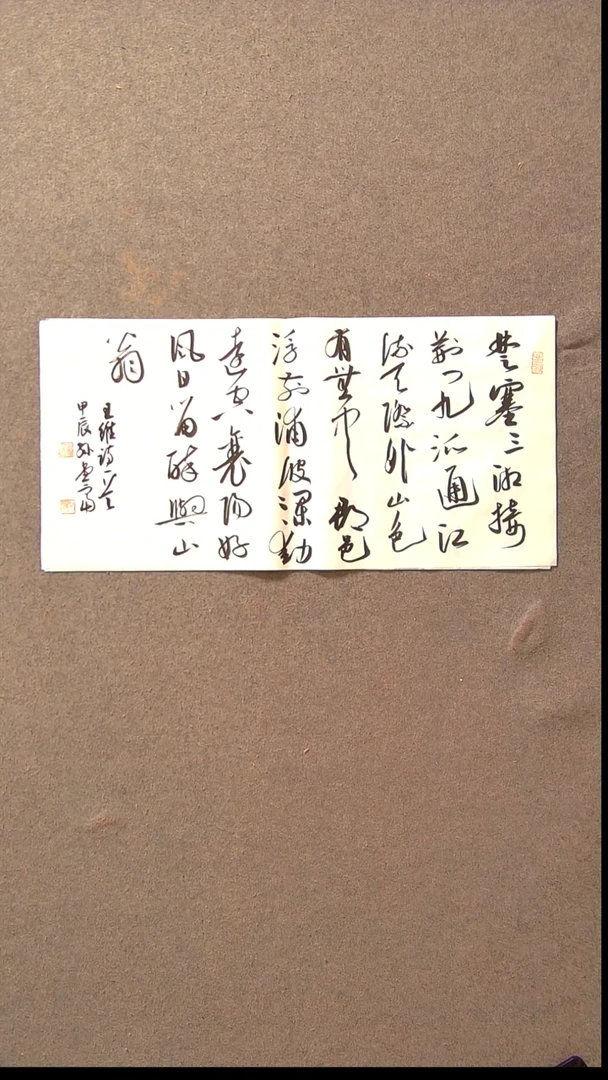 楚塞三湘接
荆门九派通江
流天际外山色
有無中郡邑
浮前浦波瀾動
遠空襄陽好
風日留醉與山
翁
王維詩一首
甲辰